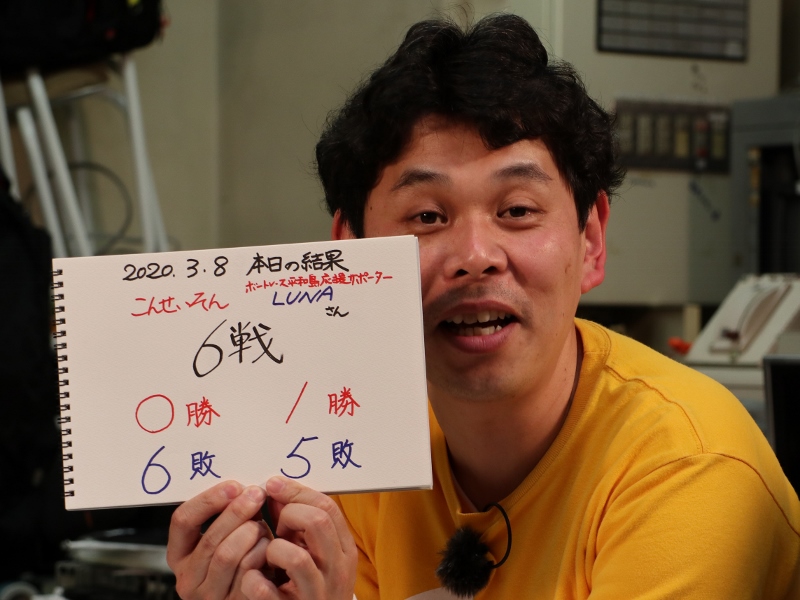 2020.3.8 本日の結果
ボートレース平和島応援サポーター
こんせいそん LUNA
さん
6戦
〇勝 1勝
6敗 5敗